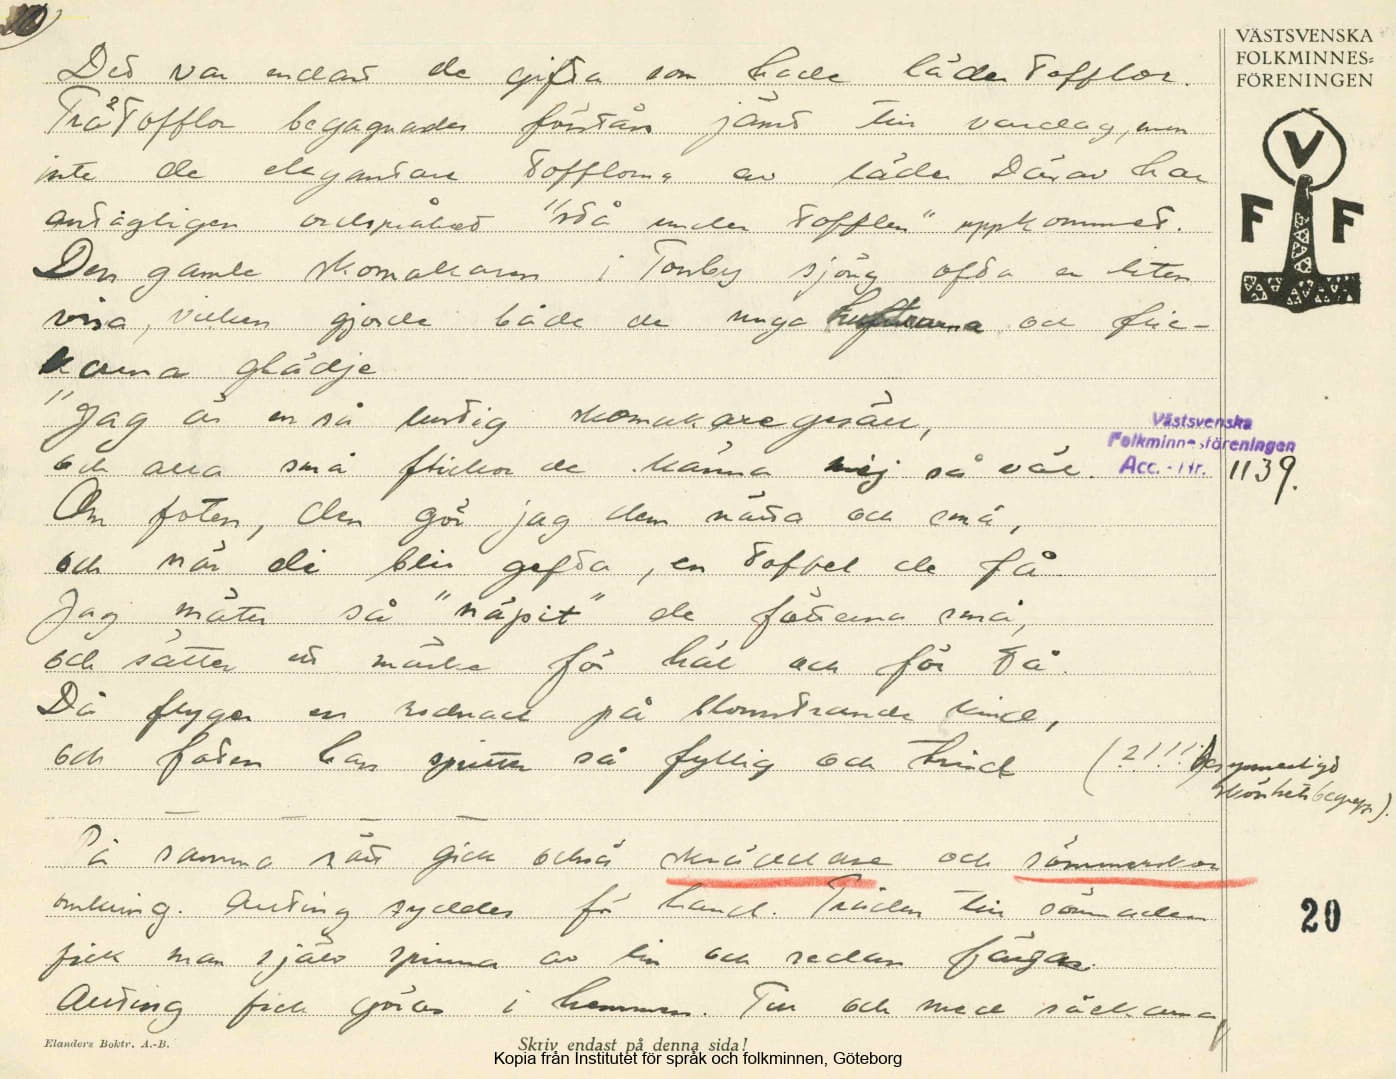 VÄSTSVENSKA
FOLKMINNES=
FÖRENINGEN
V
F F
Det var endast de gifta som hade lädertofflor.
Trätofflor begagnades förstås jämt till vardag, men
inte de elegantare tofflorna av läder Därav har
antagligen ordspråket "stå under toffeln" uppkommit.
Den gamle skomakaren i Tomby sjöng ofta en liten
visa, vilken gjorde både de unga och flic-
korna glädje
"Jag är en så lustig skomakaregesäll,
och alla små flickor de känna mig så väl.
Om foten, den gör jag dem nätta och små,
och när di blir gefta, en toffel de få
Jag mäter så "näpit" de fötterna små,
och sätter ett märke för häl och för tå.
Då flyger en rodnad på blomstrande kind,
och foten han spritter så fyllig och trind (2!!! besynnerligt
skönhetsbegrepp).
På samma sätt gick också skräddare och sömmerskor
omkring. Allting syddes för hand. Tråden till sömnaden
fick man själv spinna av lin och sedan färgas.
Allting fick göras i hemmen. Till och med säckarna
Västsvenska
Folkminnesföreningen
Acc. - Nr. 1139.
20
Elanders Boktr. A.-B.
Skriv endast på denna sida!
Kopia från Institutet för språk och folkminnen, Göteborg